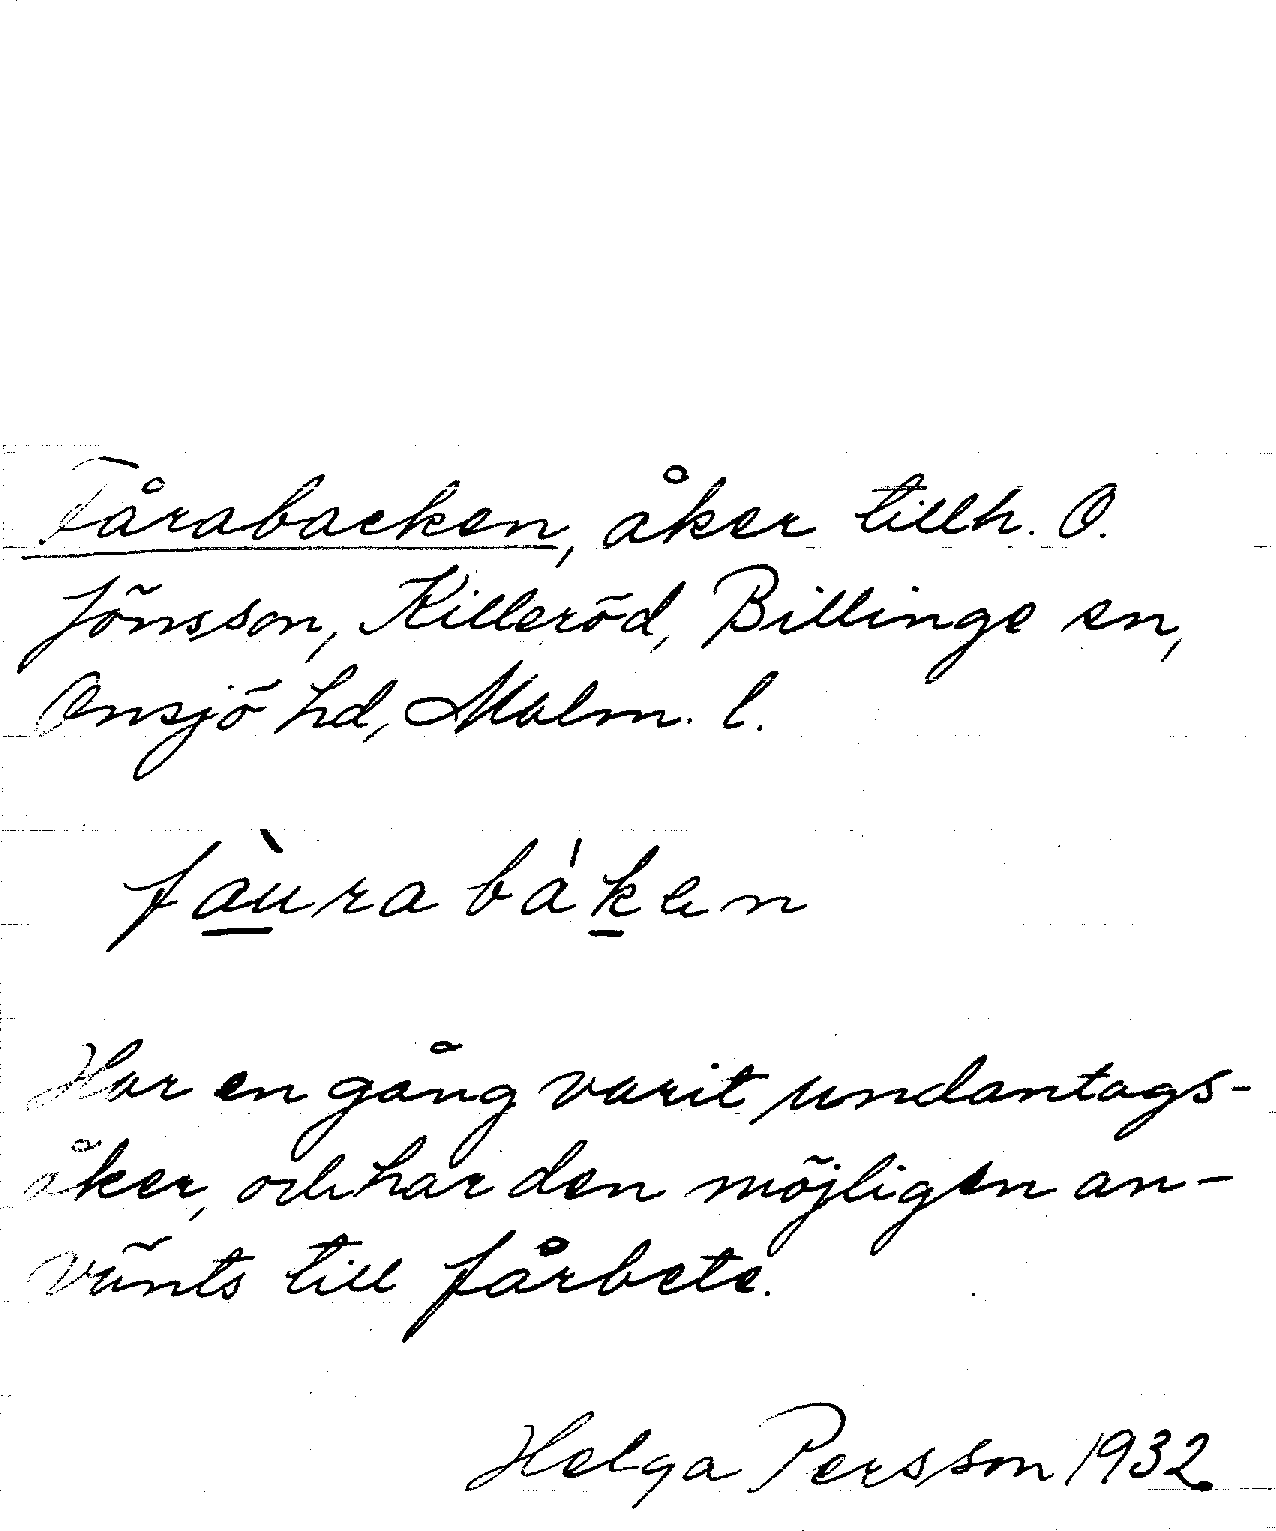 Fårabacken, åker tillh. O.
Jönsson, Killeröd, Billinge sn,
Onsjö hd, Malm. l.
fàura bákan
Har en gång varit undantags-
åker, och har den möjligen an-
vänts till fårbete.
Helga Persson 1932.